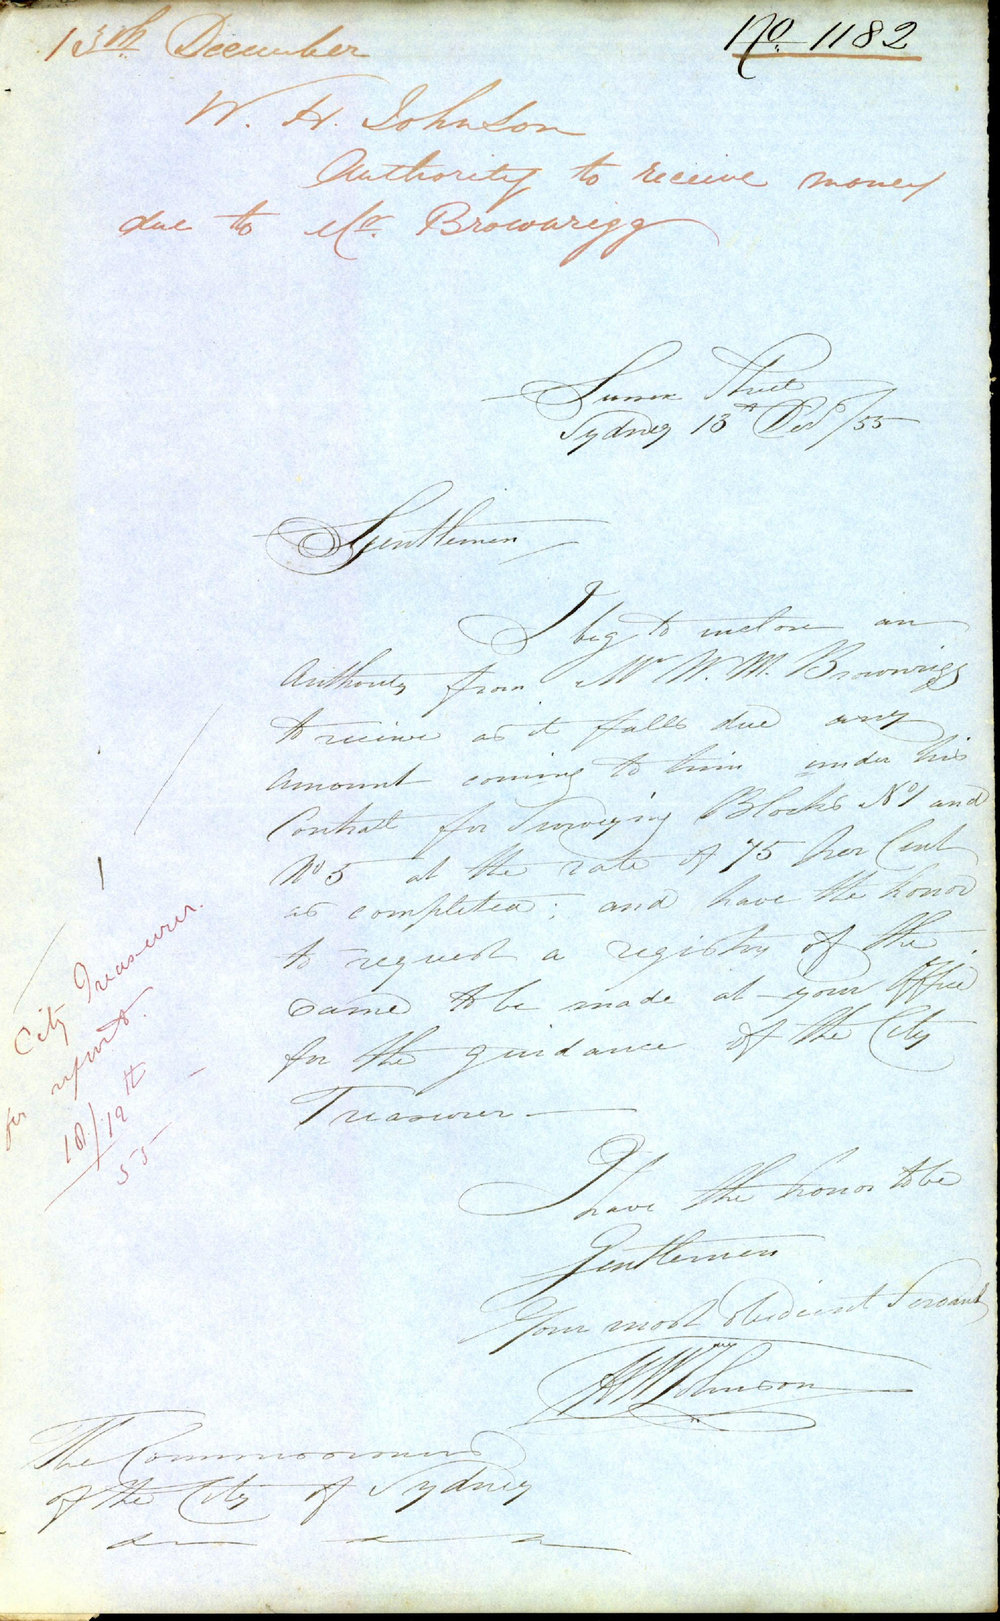 13th December
No 1182
W. H. Johnson
Authority to receive money
due to Mr. Brownrigg
Sussex Street
Sydney 13th Decr /55
Gentlemen
I beg to inclose an
Authority from Mr W. M. Brownrigg
to receive as it falls due any
amount coming to him under his
Contract for Surveying Blocks No 1 and
No 5 at the rate of 75 per Cent
as completed; and have the honor
to request a registry of the
same to be made at your Office
for the guidance of the City
Treasurer
I have the honor to be
Gentlemen
Your most obedient Servant
Johnson
The Commissioners
of the City of Sydney
City Treasurer.
for report.
18/12th
55